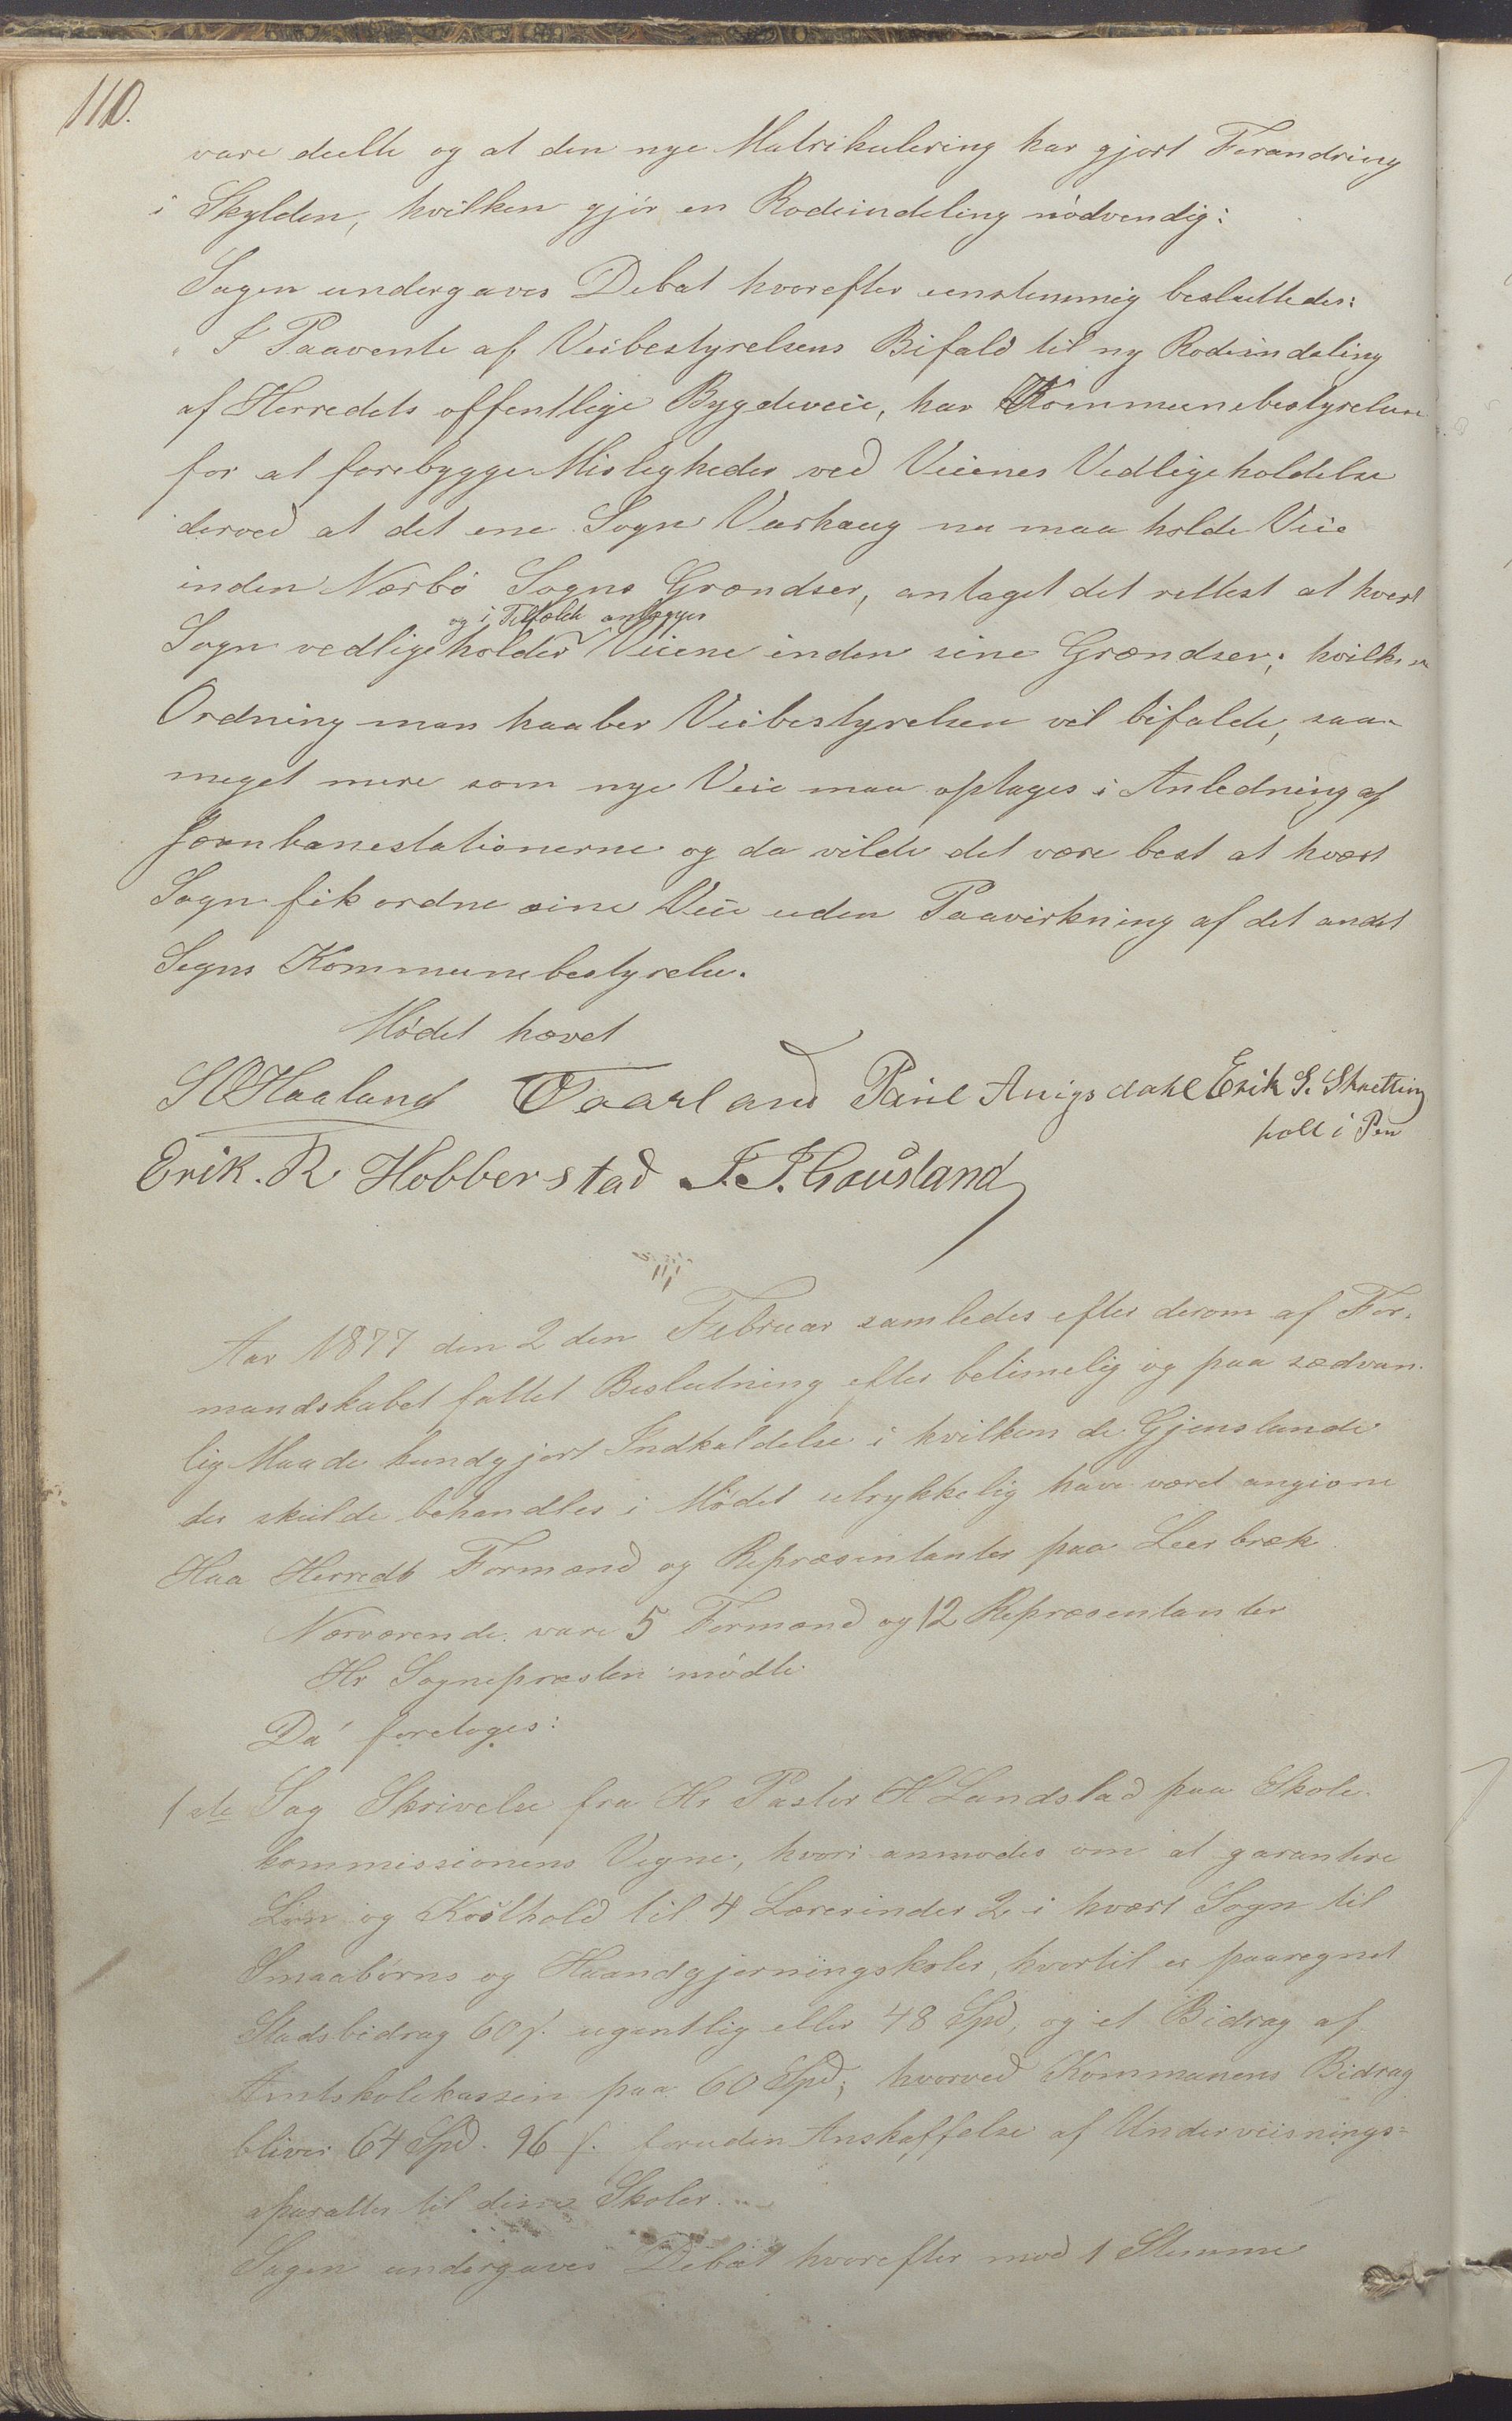 110.
vare deelte og at den nye Matrikulering har gjort Forandring
i Skylden, hvilken gjör en Rodeindeling nödvendig:
Sagen undergaves Debat hvorefter eenstemmig besluttedes:
I Paavente af Veibestyrelsens Bifald til ny Rodeindeling
af Herredets offentlige Bygdeveie, har Kommunebestyrelsen
for at forebygge Misligheder ved Veienes Vedligeholdelse
derved at det ene Sogn Varhaug nu maa holde Veie
inden Nærbö Sogns Grændser, antaget det rettest at hvert
og i Tilfælde anlægger
Sogn vedligeholder Veiene inden sine Grændser; hvilken
Ordning man haaber Veibestyrelsen vil bifalde, saa
meget mere som nye Veie maa optages i Anledning af
Jernbanestationerne og da vilde det være best at hvært
Sogn fik ordne sine Veie uden Paavirkning af det andet
Sogns Kommunebestyrelse.
Mödet hævet
Haaland Taarland Paul Anigsdahl Erik S. Skretting
hold i Pen
Erik. R Hobberstad J. J. Gausland
Aar 1877 den 2den Februar samledes efter derom af For-
mandskabet fattet Beslutning efter betimelig og paa sædvan-
lig Maade kundgjort Indkaldelse i hvilken de Gjenstande
der skulde behandles i Mödet utrykkelig have været angivne
Haa Herreds Formænd og Repræsentanter paa Leerbræk
Nærværende vare 5 Formænd og 12 Repræsentanter
Hr Sognepræsten mödte
Da foretoges:
1ste Sag Skrivelse fra Hr Pastor H Landstad paa Skole-
kommissionens Vegne, hvori anmodes om at garantere
Lön og Kosthold til 4 Lærerinder 2 i hvært Sogn til
Smaabörns og Haandgjerningskoler, hvortil er paaregnet
Stadsbidrag 60 s. ugentlig eller 48 Spd, og et Bidrag af
Amtskolekassen paa 60 Spd; hvorved Kommunens Bidrag
bliver 64 Spd. 96 s. foruden Anskaffelse af Underviisnings-
aparatter til disse Skoler.
Sagen undergaves Debat hvorefter mod 1 Stemme